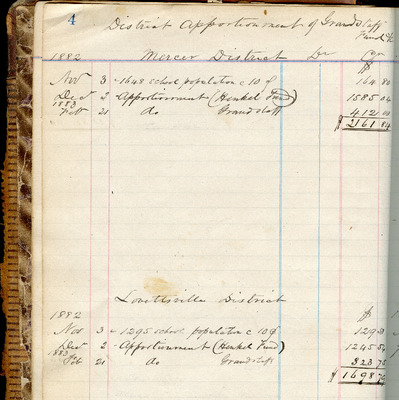 4 District Apportionment of Grandstaff
Fund &c
1882 Mercer District Dr Cr
$
Nov 3 1648 school population @ 10¢ 164 80
Dec 2 Apportionment (Henkel Fund) 1585 04
1883
Feb 21 do Grandstaff 412 00
$ 2161 84
Lovettsville District
1882 $
Nov 3 1295 school population @ 10¢ 129
Dec 2 Apportionment (Henkel Fund) 1245
1883
Feb 21 do Grandstaff 323 75
$ 1698